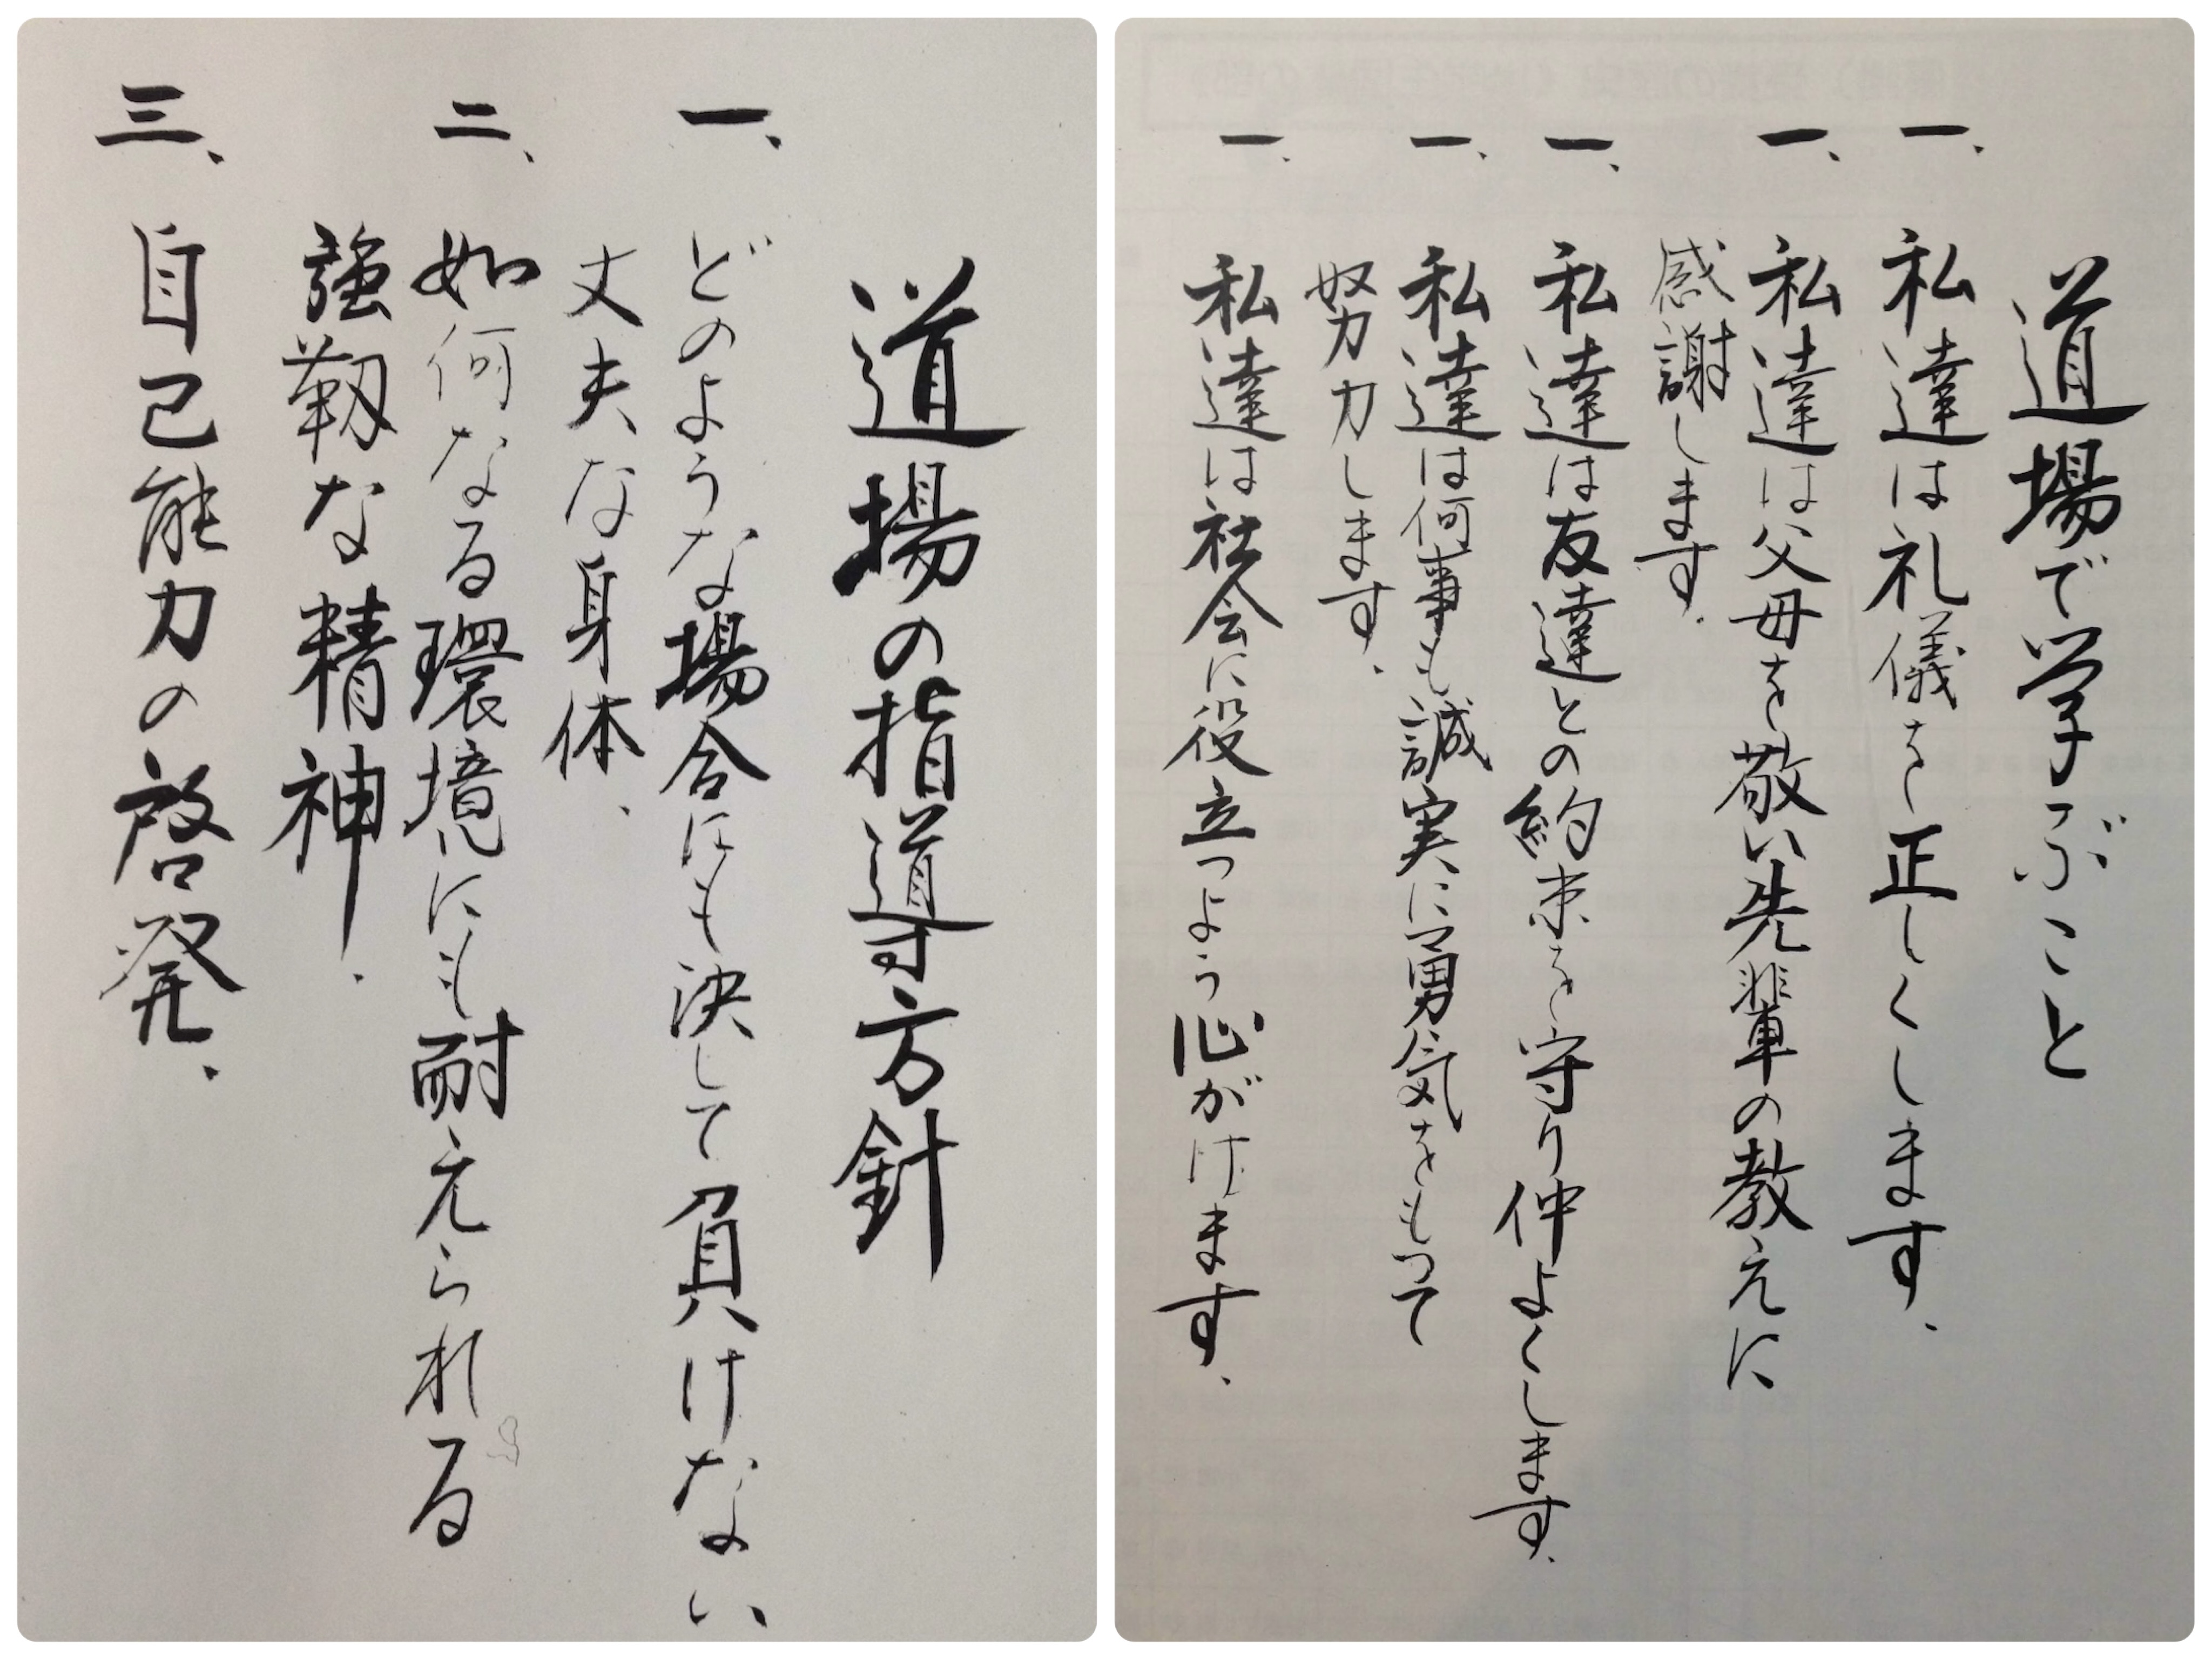 道場で学ぶこと
一、私達は礼儀を正しくします、
一、私達は父母を敬い先輩の教えに
感謝します、
一、私達は友達との約束を守り仲よくします、
一、私達は何事も誠実に勇気をもって
努力します、
一、私達は社会に役立つよう心がけます、
道場の指導方針
一、どのような場合にも決して負けない
丈夫な身体、
二、如何なる環境にも耐えられる
強靱な精神、
三、自己能力の啓発、